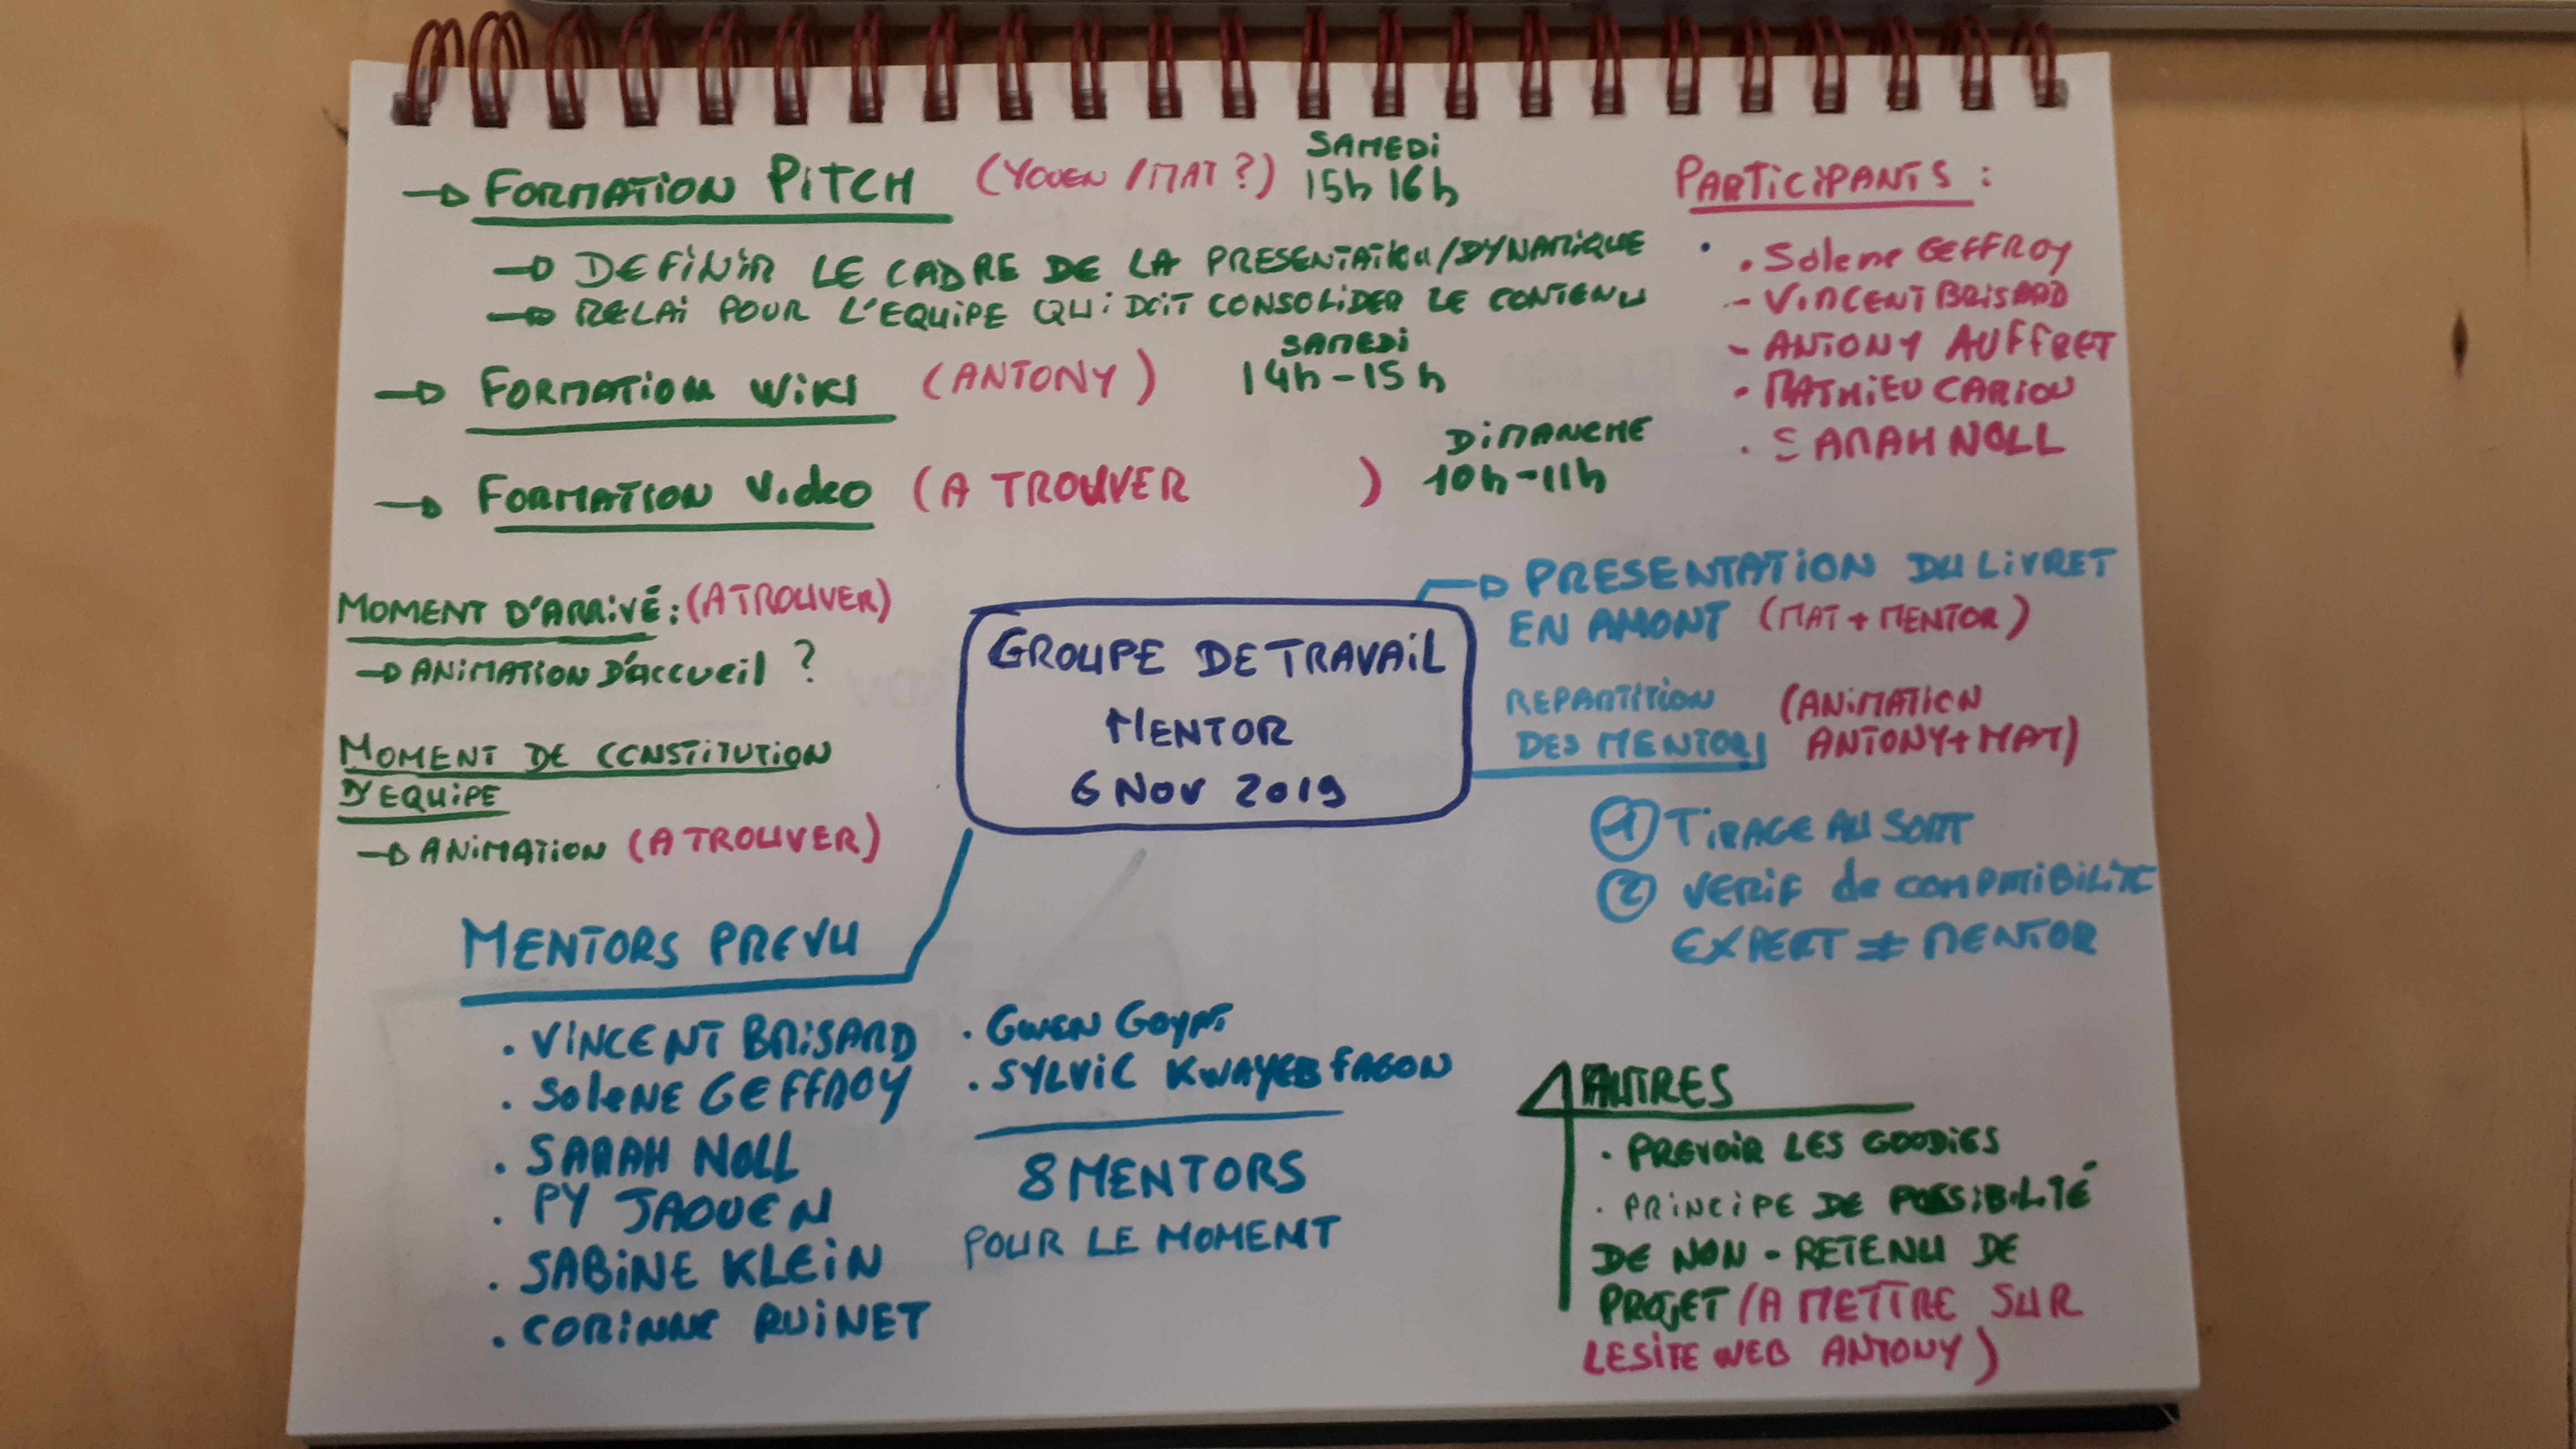 → FORMATION PiTCH (YOUEN / MAT ?) SAMEDi 15h 16h
→ DEFiNiR LE CADRE DE LA PRESENTATiON/DYNAMiQUE
→ RELAi POUR L'EQUiPE QUi DOiT CONSOLiDER LE CONTENU
→ FORMATiON WiKi (ANTONY) SAMEDi 14h-15h
→ FORMATiON Video (A TROUVER ) DiMANCHE 10h-11h
PARTiCiPANTS :
. Solene GEFFROY
- ViNCENT BRiSARD
- ANTONY AUFFRET
- MATHiEU CARiOU
. SARAH NOLL
MOMENT D'ARRiVÉ : (A TROUVER)
→ ANiMATiON D'Accueil ?
MOMENT DE CONSTiTUTiON
D'EQUiPE
→ ANiMATiON (A TROUVER)
GROUPE DE TRAVAiL
MENTOR
6 NOV 2019
→ PRESENTATiON DU LiVRET
EN AMONT (MAT + MENTOR)
REPARTiTiON (ANiMATiON
DES MENTORS ANTONY+MAT)
① TiRAGE AU SORT
② VERiF de COMPATiBiLiTE
EXPERT ≠ MENTOR
MENTORS PREVU
. ViNCENT BRiSARD
. SoleNE GEFFROY
. SARAH NOLL
. PY JAOUEN
. SABiNE KLEiN
. CORiNNE RUiNET
. GWEN
. SYLViE KWAYEB FAGON
8 MENTORS
POUR LE MOMENT
AUTRES
. PREVOiR LES GOODiES
. PRiNCiPE DE POSSiBiLiTÉ
DE NON - RETENU DE
PROJET (A METTRE SUR
LE SiTE WEB ANTONY)